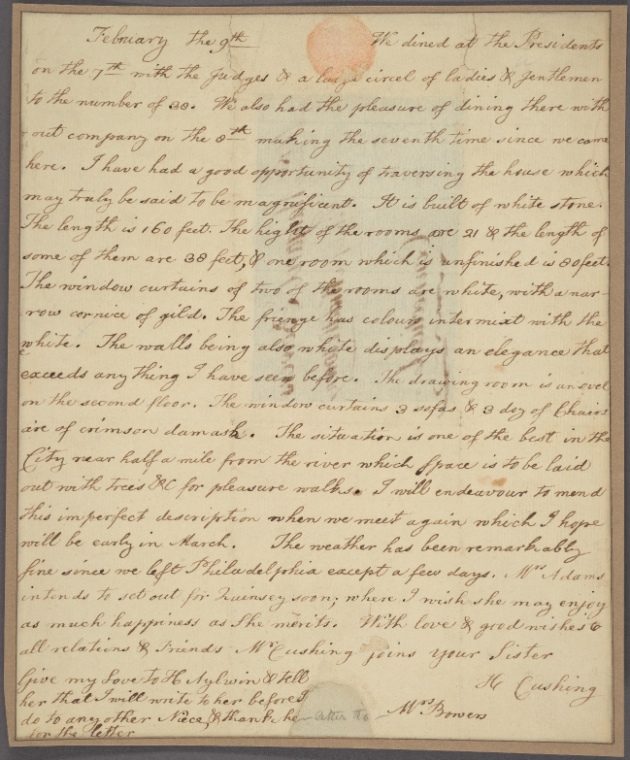 February the 9th We dined at the Presidents
on the 7th with the Judges & a large circel of ladies & gentlemen
to the number of 38. We also had the pleasure of dining there with
out company on the 8th making the seventh time since we came
here. I have had a good opportunity of traversing the house which
may truly be said to be magnificent. It is built of white stone.
The length is 160 feet. The hight of the rooms are 21 & the length of
some of them are 38 feet, & one room which is unfinished is 80 feet.
The window curtains of two of the rooms are white, with a nar-
row cornice of gild. The frienge has colours intermixt with the
white. The walls being also white displays an elegance that
exceeds any thing I have seen before. The drawing room is an ovel
on the second floor. The window curtains 3 sofas & 3 doz of Chairs
are of crimson damask. The situation is one of the best in the
City near half a mile from the river which space is to be laid
out with trees &C for pleasure walks. I will endeavour to mend
this imperfect description when we meet again which I hope
will be early in March. The weather has been remarkably
fine since we left Philadelphia except a few days. Mrs Adams
intends to set out for Quensey soon; where I wish she may enjoy
as much happiness as She merits. With love & good wishes to
all relations & Friends Mr Cushing joins your Sister
H Cushing
Give my love to H Aylwin & tell
her that I will write to her before I
do to any other Niece, & thank he
for the letter
Mrs Bowers